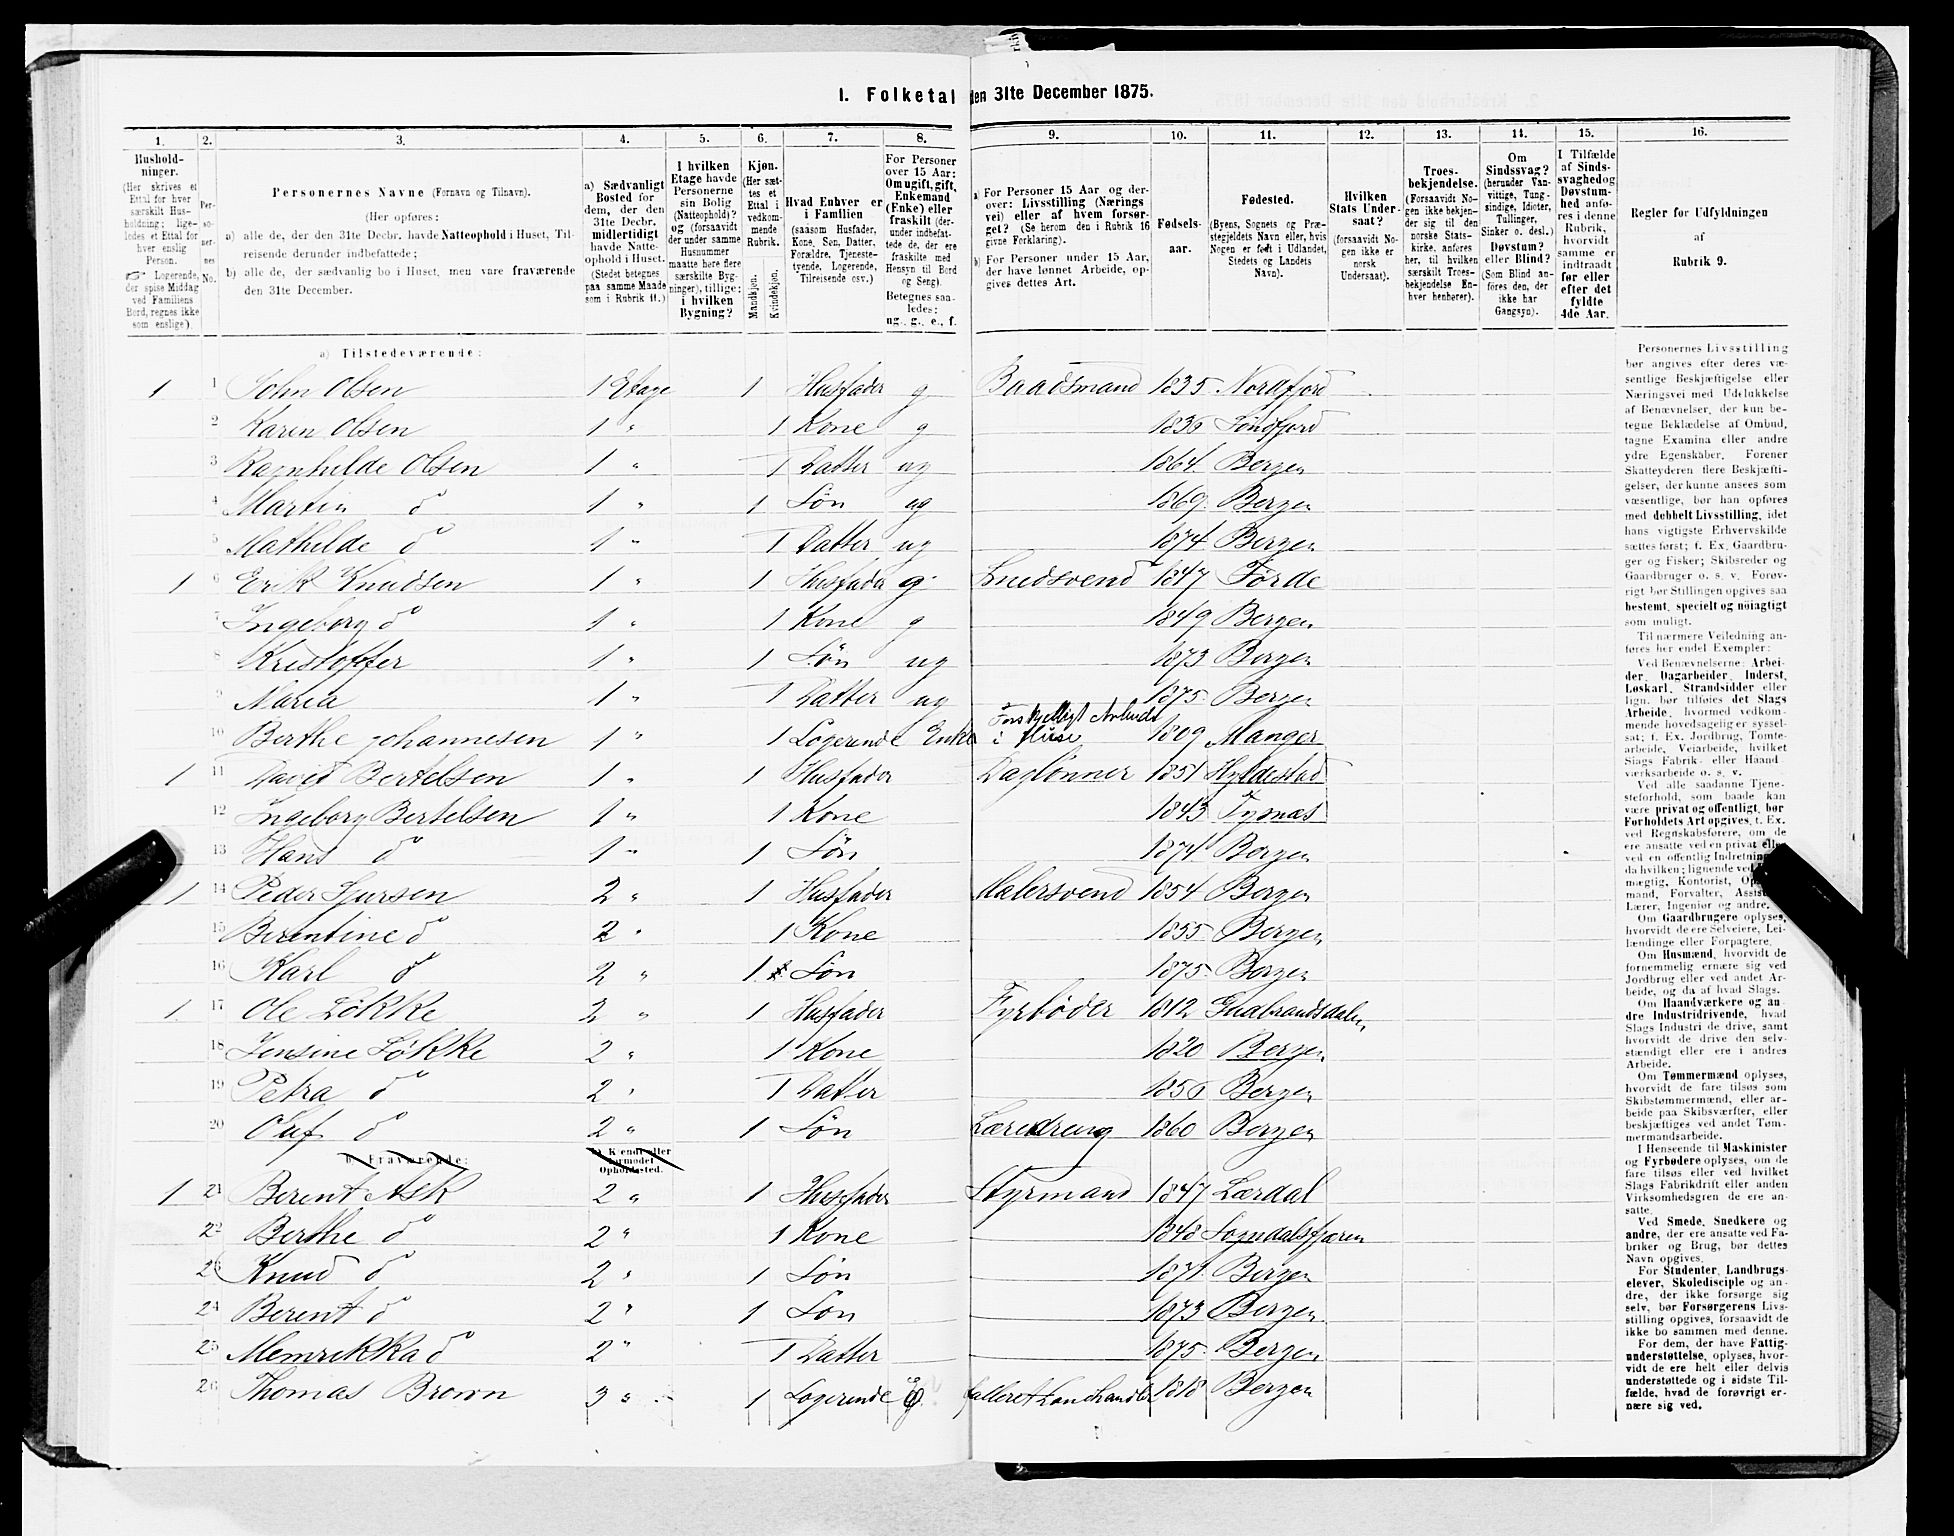 1. Folketal den 31te December 1875.
1. 2. 3. 4. 5. 6. 7. 8. 9. 10. 11. 12. 13. 14. 15. 16.
Hushold-
ninger.
(Her skrives et
Ettal for hver
særskilt Hus-
holdning; lige-
ledes et Ettal for
hver enslig
Person.
☞ Logerende,
der spise Middag
ved Familiens
Bord, regnes ikke
som enslige).
Per-
so-
ner-
nes
No.
Personernes Navne (Fornavn og Tilnavn).
(Her opføres:
a) alle de, der den 31te Decbr. havde Natteophold i Huset, Til-
reisende derunder indbefattede;
b) alle de, der sædvanlig bo i Huset, men vare fraværende
den 31te December.
a) Sædvanligt
Bosted for
dem, der den
31te Decbr.
midlertidigt
havde Natte-
ophold i Huset.
(Stedet betegnes
paa samme Maade
som i Rubrik 11.)
I hvilken
Etage havde
Personerne
sin Bolig
(Natteophold)?
og (forsaavidt
der under samme
Husnummer
maatte høre flere
særskilte Byg-
ninger), tillige:
i hvilken
Bygning?
Kjøn.
(Her sæt-
tes et
Ettal i
vedkom-
mende
Rubrik.
Mandkjøn.
Kvindekjøn.
Hvad Enhver er
i Familien
(saasom Husfader,
Kone, Søn, Datter,
Forældre, Tjeneste-
tyende, Logerende,
Tilreisende osv.)
For Personer
over 15 Aar:
Om ugift, gift,
Enkemand
(Enke) eller
fraskilt (der-
under indbefat-
tede de, der ere
fraskilte med
Hensyn til Bord
og Seng).
Betegnes saa-
ledes:
ug., g., e., f.
a) For Personer 15 Aar og der-
over: Livsstilling (Nærings
vei) eller af hvem forsør-
get? (Se herom den i Rubrik 16
givne Forklaring).
b) For Personer under 15 Aar,
der have lønnet Arbeide, op-
gives dettes Art.
Fødsels-
aar.
Fødested.
(Byens, Sognets og Præ-
stegjeldets Navn eller, hvis
Nogen er født i Udlandet,
Stedets og Landets
Navn).
Hvilken
Stats Under-
saat?
(forsaavidt No-
gen ikke er
norsk
Undersaat).
Troes-
bekjendelse.
(Forsaavidt No-
gen ikke bekjen-
der sig til den
norske Stats-
kirke, anføres
her, til hvilken
særskilt Troes-
bekjendelse En-
hver henhører).
Om
Sindssvag?
(herunder Van-
vittige, Tung-
sindige, Idioter,
Tullinger,
Sinker o. desl.)
Døvstum?
eller Blind?
(Som Blind an-
føres den, der
ikke har
Gangsyn).
I Tilfælde
af Sinds-
svaghed og
Døvstum-
hed anfø-
res i denne
Rubrik,
hvorvidt
samme er
indtraadt
før eller
efter det
fyldte
4de Aar.
Regler for Udfyldningen
af
Rubrik 9.
a) Tilstedeværende:
1 1 John Olsen 1 Etage 1 Husfader g Baadsmand 1835 Nordfjord
2 Karen Olsen 1 " 1 Kone g 1836 Søndfjord
3 Ragnhilde Olsen 1 " 1 Datter ug 1864 Bergen
4 Martin do 1 " 1 Søn ug 1869 Bergen
5 Mathilde do 1 " 1 Datter ug 1874 Bergen
1 6 Erik Knudsen 1 " 1 Husfader g Snedsvend 1847 Førde
7 Ingeborg do 1 " 1 Kone g 1849 Bergen
8 Kristoffer 1 " 1 Søn ug 1873 Bergen
9 Maria 1 " 1 Datter ug 1875 Bergen
10 Berthe Johannesen 1 " 1 Logerende Enke Forskjelligt Arbeide i Huse 1809 Manger
1 11 David Bertelsen 1 " 1 Husfader Daglønner 1851 Hyldestad
12 Ingeborg Bertelsen 1 " 1 Kone 1843 Tysnæs
13 Hans do 1 " 1 Søn 1874 Bergen
1 14 Peder Sjursen 2 " 1 Husfader Malersvend 1854 Bergen
15 Berentine do 2 " 1 Kone 1855 Bergen
16 Karl do 2 " 1 Søn 1875 Bergen
1 17 Ole Løkke 2 " 1 Husfader Fyrbøder 1812 Gudbrandsdalen
18 Jensine Løkke 2 " 1 Kone 1820 Bergen
19 Petra do 2 " 1 Datter 1850 Bergen
20 Oluf do 2 " 1 Søn Læredreng 1860 Bergen
b) Fraværende: b) Kjendt eller formodet Opholdssted.
1 21 Berent Ask 2 " 1 Husfader Styrmand 1847 Lærdal
22 Berthe do 2 " 1 Kone 1848 Sogndalsfjæren
23 Knud do 2 " 1 Søn 1871 Bergen
24 Berent do 2 " 1 Søn 1873 Bergen
25 Hemrikka do 2 " 1 Datter 1875 Bergen
26 Thomas Brown 3 " 1 Logerende falleret Landhandler 1818 Bergen
Personernes Livsstilling
bør angives efter deres væ-
sentlige Beskjæftigelse eller
Næringsvei med Udelukkelse
af Benævnelser, der kun be-
tegne Beklædelse af Ombud,
tagne Examina eller andre
ydre Egenskaber. Forener
Skatteyderen flere Beskjæfti-
gelser, der kunne ansees som
væsentlige, bør han opføres
med dobbelt Livsstilling, idet
hans vigtigste Erhvervskilde
sættes først; f. Ex. Gaardbru-
ger og Fisker; Skibsreder og
Gaardbruger o. s. v. Forøv-
rigt bør Stillingen opgives saa
bestemt, specielt og nöiagtigt
som muligt.
Til nærmere Veiledning an-
føres her endel Exempler:
Ved Benævnelserne: Arbei-
der, Dagarbeider, Inderst,
Løskarl, Strandsidder eller
lign. bør tilføies det Slags
Arbeide, hvormed vedkom-
mende hovedsagelig er syssel-
sat; f. Ex. Jordbrug, Tomte-
arbeide, Veiarbeide, hvilket
Slags Fabrik- eller Haand-
værksarbeide o. s. v.
Ved alle saadanne Tjene-
steforhold, som baade kan
være privat og offentligt, bør
Forholdets Art opgives, f. Ex.
ved Regnskabsførere, om de
ere ansatte ved en privat eller
ved en offentlig Indretning
da hvilken; lignende ved
mægtig, Kontorist, Op
mand, Forvalter, Assist
Lærer, Ingeniør og andre.
Om Gaardbrugere oplyses,
hvorvidt de ere Selveiere, Lei-
lændinge eller Forpagtere.
Om Husmænd, hvorvidt de
fornemmelig ernære sig ved
Jordbrug eller ved andet Ar-
beide, og da af hvad Slags.
Om Haandværkere og an-
dre Industridrivende, hvad
Slags Industri de drive, samt
hvorvidt de drive den selv-
stændigt eller ere i andres
Arbeide.
Om Tømmermænd oplyses,
hvorvidt de fare tilsøs som
Skibstømmermænd, eller ar-
beide paa Skibsværfter, eller
beskjæftiges ved andet Tøm-
mermandsarbeide.
I Henseende til Maskinister
og Fyrbødere oplyses, om de
fare tilsøs eller ved hvilket
Slags Fabrikdrift eller anden
Virksomhedsgren de ere an-
satte.
Ved Smede, Snedkere og
andre, der ere ansatte ved Fa-
briker og Brug, bør dettes
Navn opgives.
For Studenter, Landbrugs-
elever, Skoledisciple og an-
dre, der ikke forsørge sig
selv, bør Forsørgerens Livs-
stilling opgives, forsaavidt de
ikke bo sammen med denne.
For dem, der have Fattig-
understøttelse, oplyses, hvor-
vidt de ere helt eller delvis
understøttede og i sidste Til-
fælde, hvad de forøvrigt er-
nære sig ved.